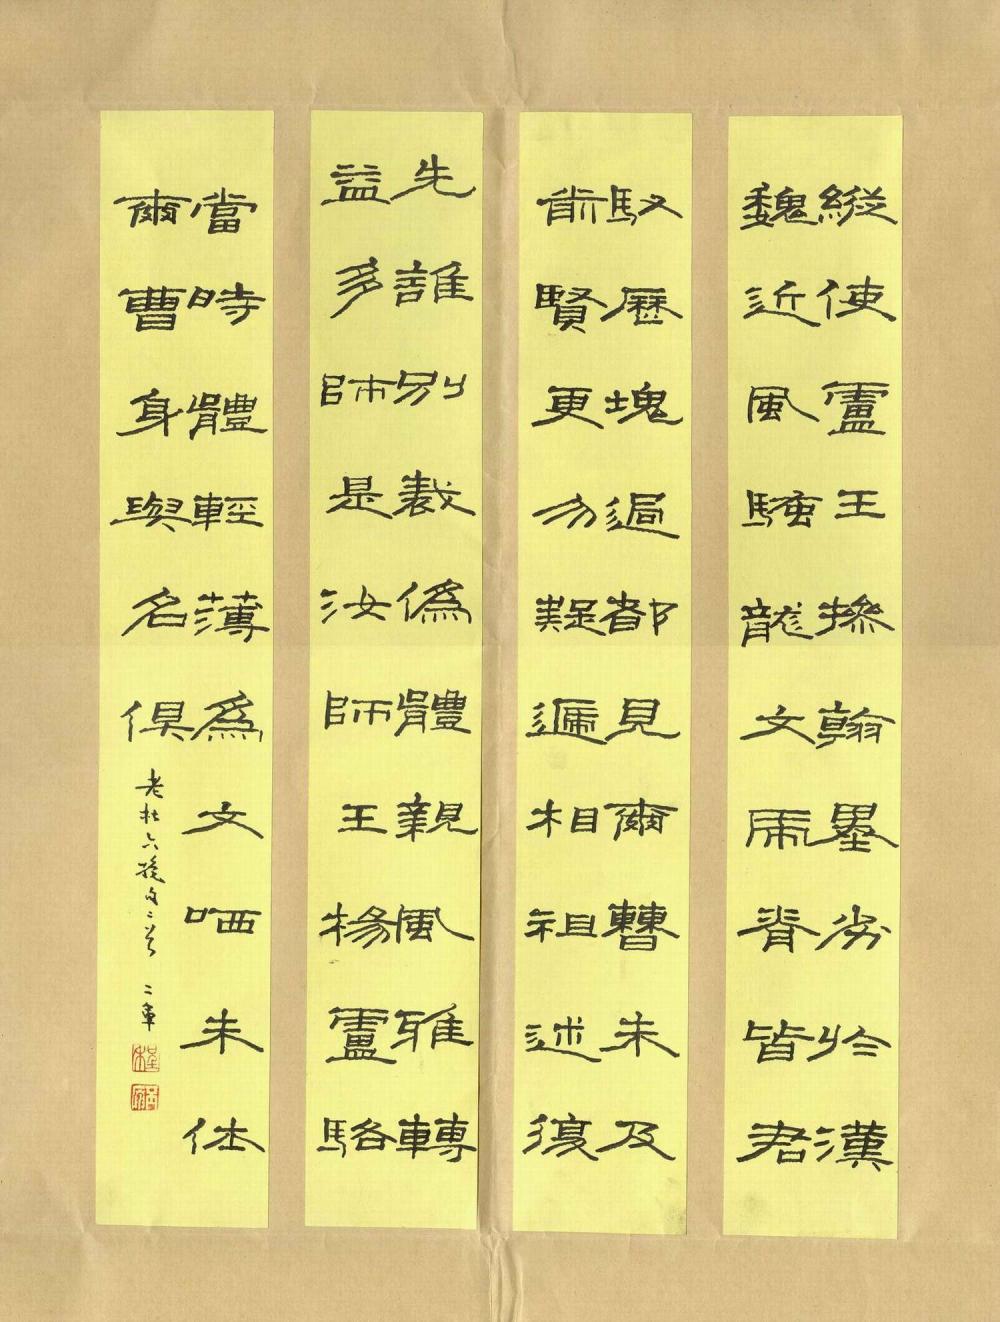 縱使盧王操翰墨劣於漢
魏近風騷龍文虎脊皆君
馭歷塊過都見爾曹未及
前賢更勿疑遞相祖述復
先誰別裁偽體親風雅轉
益多師是汝師王楊盧駱
當時體輕薄為文哂未休
爾曹身與名俱
老杜六絕句二首 二軍